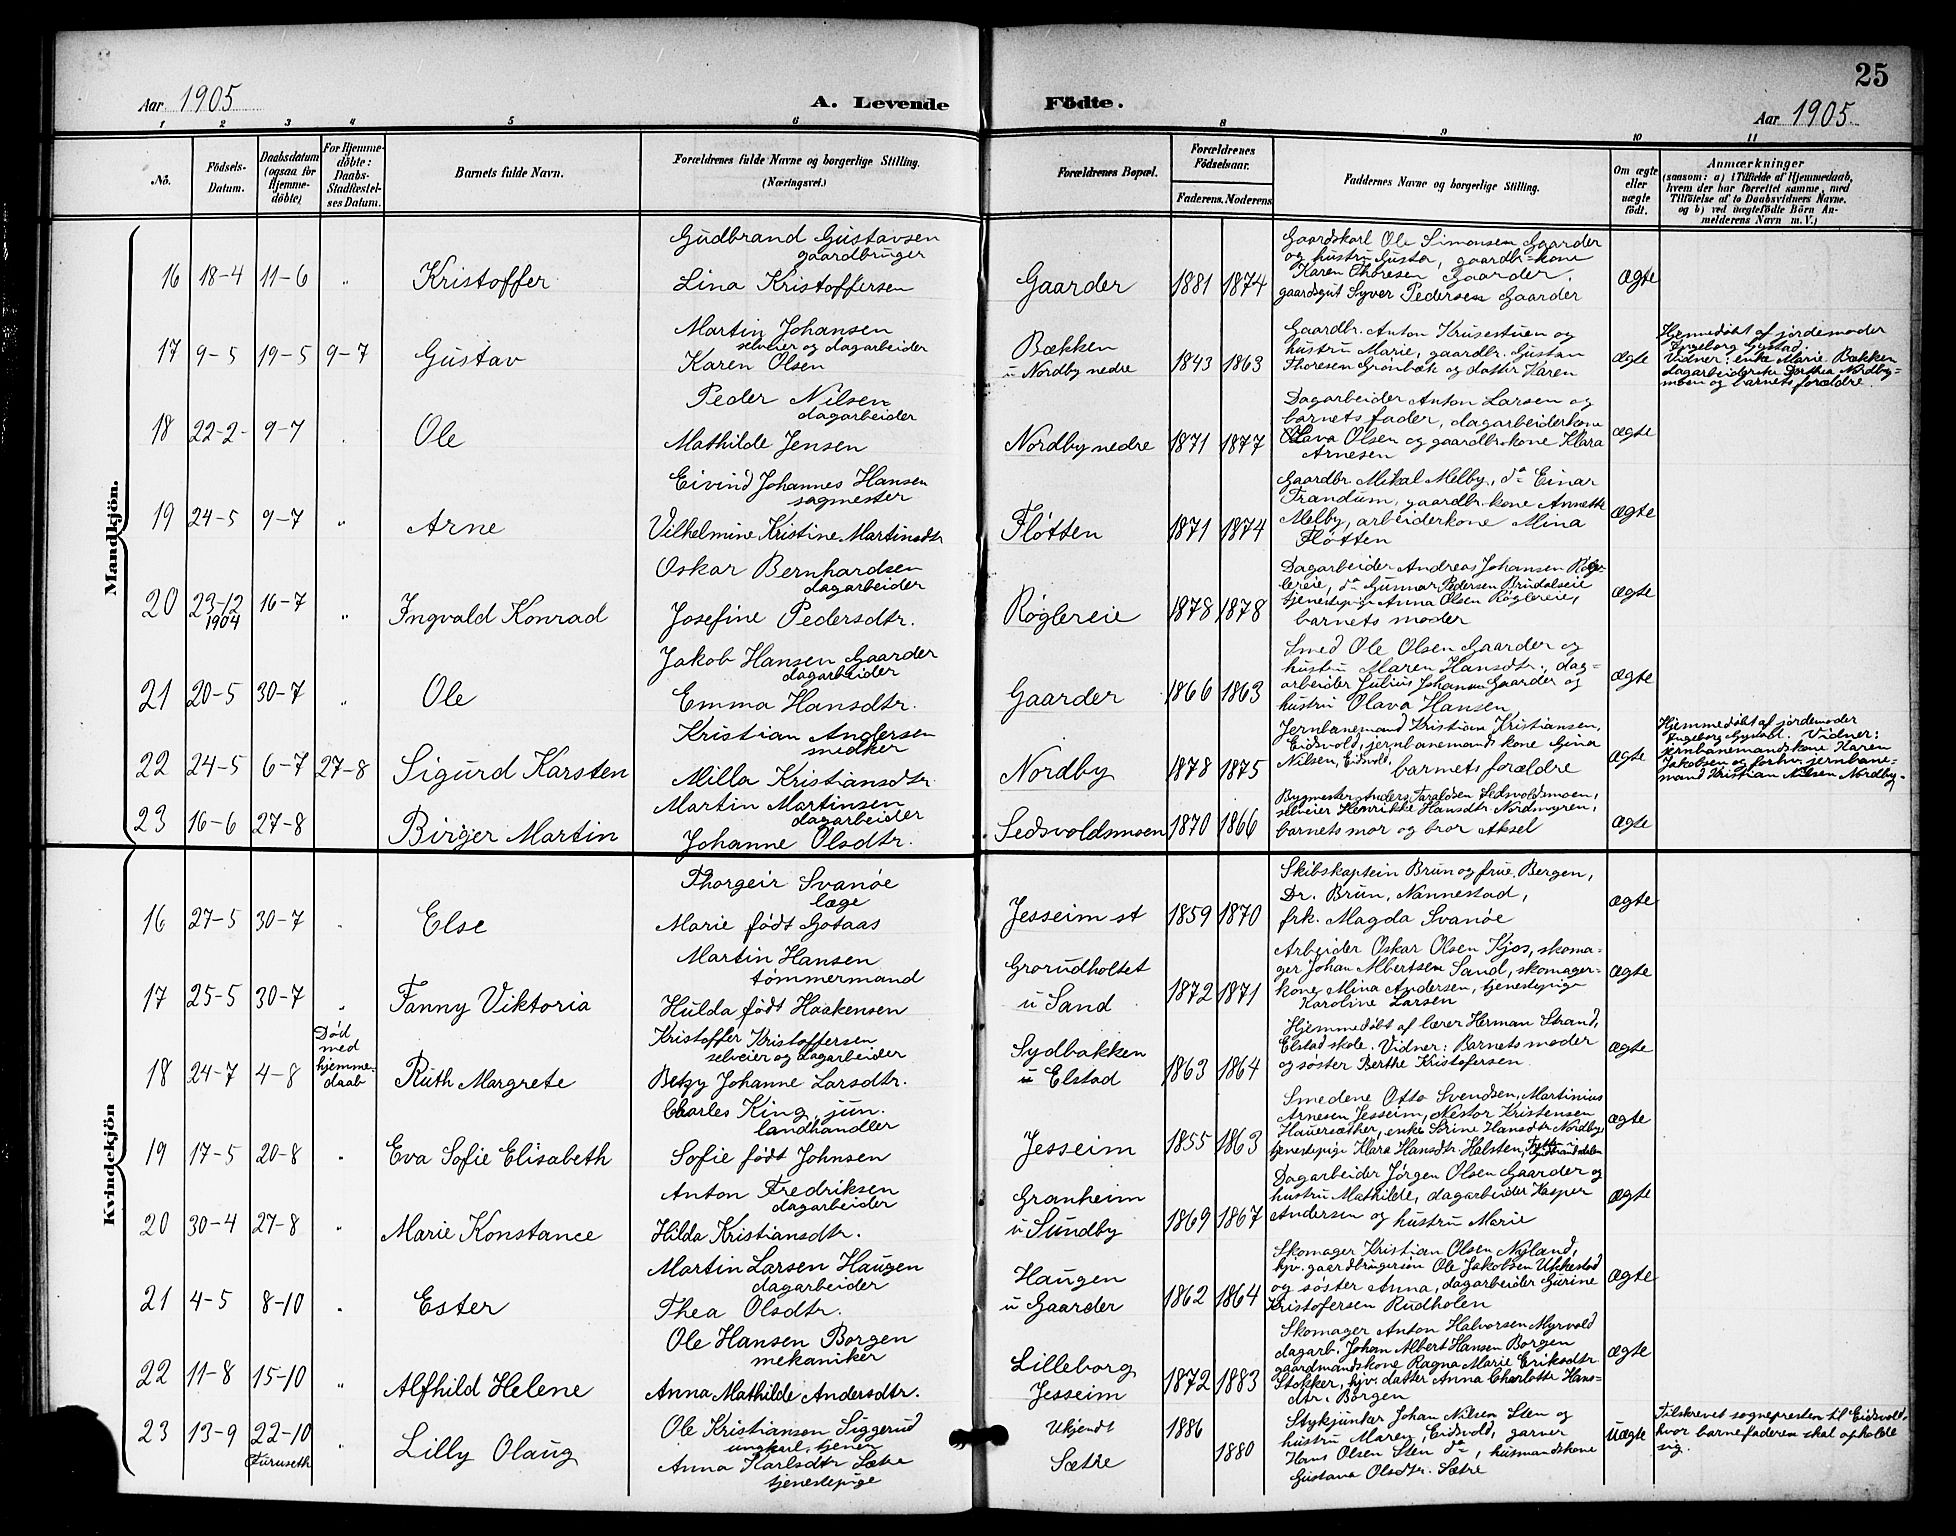 25
Aar 1905
A. Levende Födte.
Aar 1905.
1 2 3 4 5 6 8 9 10 11
No.
Födsels-Datum.
Daabsdatum (ogsaa for Hjemme-döbte)
For Hjemme-döbte: Daabs-Stadfæstel-ses Datum.
Barnets fulde Navn.
Forældrenes fulde Navne og borgerlige Stilling.
(Næringsvei.)
Forældrenes Bopæl.
Forældrenes Födselsaar.
Faderens. Moderens
Faddernes Navne og borgerlige Stilling.
Om ægte eller uægte födt.
Anmærkninger
(saasom: a) i Tilfælde af Hjemmedaab,
hvem der har forrettet samme, med
Tilföielse af to Daabsvidners Navne.
og b) ved uægtefödte Börn An-
melderens Navn m. V.)
Mandkjön.
16 18-4 11-6 " Kristoffer
Gudbrand Gustavsen
gaardbruger
Lina Kristoffersen
Gaarder 1881 1874
Gaardskarl Ole Simonsen Gaarder
og hustru Gusta, gaardbr=kone
Karen Thoresen Gaarder.
gaardsgut Syver Pedersen Gaarder
Ægte
17 9-5 19-5 9-7 Gustav
Martin Johansen
selveier og dagarbeider
Karen Olsen
Bækken
u Nordby nedre 1843 1863
Gaardbr. Anton Krusestuen og
hustru Marie, gaardbr. Gustav
Thoresen Grønbæk og datter Karen
Ægte
Hjemmedøbt af jordemoder
Ingeborg Gystad.
Vidner: enke Marie Bækken
dagarbeiderske Dorthea Nordby=
mben og barnets forældre.
18 22-2- 9-7 Ole
Peder Nilsen
dagarbeider
Mathilde Jensen
Nordby nedre 1871 1877
Dagarbeider Anton Larsen og
barnets fader, dagarbeiderkone
Olava Olsen og gaardbrkone Klara
Arnesen
Ægte
19 24-5 9-7 " Arne
Eivind Johannes Hansen
sagmester
Vilhelmine Kristine Martinsdtr
Fløtten 1871 1874
Gaardbr Mikal Melby, do Einar
Trandum, gaardbr-kone Annette
Melby, arbeiderkone Mina
Fløtten
Ægte
20 23-12 1904 16-7 " Ingvald Konrad
Oskar Bernhardsen
dagarbeider
Josefine Pedersdtr.
Røglereie 1878 1878
Dagarbeider Andreas Johansen Røg-
lereie, do Gunnar Pedersen Brudalseie
tjenestepige Anna Olsen Røglereie,
barnets moder
Ægte
21 20-5 30-7 " Ole
Jakob Hansen Gaarder
dagarbeider
Emma Hansdtr.
Gaarder 1866 1863
Smed Ole Olsen Gaarder og
hustru Maren Hansdtr., dag=
arbeider Julius Johansen Gaarder og
hustru Olava Hansen
Ægte
22 24-5 6-7 27-8 Sigurd Karsten
Kristian Andersen
snedker
Milla Kristiansdtr
Nordby 1878 1875
Jernbanemand Kristian Kristiansen,
Eidsvold, jernbanemands kone Gina
Nilsen, Eidsvold, barnets forældre
Ægte
Hjemmedøbt af jordemoder
Ingeborg Gystad. Vidner:
jernbanemandskone Karen
Jakobsen og forhv. jernbane=
mand Kristian Nilsen Nordby.
23 16-6 27-8 Birger Martin
Martin Martinsen
dagarbeider
Johanne Olsdtr.
Sedsvoldsmoen 1870 1866
Bygmester Anders Taraldsen Sedsvoldsmoen,
selveier Henrikke Hansdtr Nordmyren,
barnets mor og bror Aksel
Ægte
Kvindekjön
16 27-5 30-7 Else
Thorgeir Svanøe
læge
Marie født Gotaas
Jesseim st 1859 1870
Skibskaptein Brun og frue, Bergen,
Dr. Brun, Nannestad,
frk. Magda Svanøe
Ægte
17 25-5 30-7 " Fanny Viktoria
Martin Hansen
tømmermand
Hulda født Haakensen
Grorudholtet
u Sand 1872 1871
Arbeider Oskar Olsen Kjos, skoma=
ger Johan Albertsen Sand, skomager-
kone Mina Andersen, tjenestepige
Karoline Larsen
Ægte
18 24-7 4-8
Død
med
hjemme-
daab
Ruth Margrete
Kristoffer Kristoffersen
selveier og dagarbeider
Betzy Johanne Larsdtr.
Sydbakken
u Elstad 1863 1864
Hjemmedøbt af lærer Herman Strand,
Elstad skole. Vidner: Barnets moder
og søster Berthe Kristofersen
Ægte
19 17-5 20-8 " Eva Sofie Elisabeth
Charles King, jun.
landhandler
Sofie født Johnsen
Jesseim 1855 1863
Smedene Otto Svendsen, Martinius
Arnesen Jesseim, Nestor Kristensen
Hauersæther, enke Serine Hansdtr Nordby
tjenestepige Klara Hansdtr. Holsten,
Ægte
20 30-4 27-8 " Marie Konstance
Anton Fredriksen
dagarbeider
Hilda Kristiansdtr.
Granheim
u Sundby 1869 1867
Dagarbeider Jørgen Olsen Gaarder og
hustru Mathilde, dagarbeider Kasper
Andersen og hustru Marie
Ægte
21 4-5 8-10 " Ester
Martin Larsen Haugen
dagarbeider
Thea Olsdtr.
Haugen
u Gaarder 1862 1864
Skomager Kristian Olsen Nyland,
hjv. gaardbrugersøn Ole Jakobsen Ukkestad
og søster Anna, dagarbeider Gurine
Kristofersen Rudholen
Ægte
22 11-8 15-10 " Alfhild Helene
Ole Hansen Borgen
mekaniker
Anna Mathilde Andersdtr.
Lilleborg
Jesseim 1872 1883
Skomager Anton Halvorsen Myrvold
dagarb. Johan Albert Hansen Borgen
gaardmandskone Ragna Marie Eriksdtr.
Stokker, hjv. datter Anna Charlotte Hans=
dtr. Borgen
Ægte
23 13-9 22-10 Furuseth " Lilly Olaug
Ole Kristiansen Siggerud
ungkarl, tjener
Anna Karlsdtr Sætre
tjenestepige
Ukjendt 1886
Sætre 1880
Stykjunkar Johan Nilsen Sten og
hustru Maren, Eidsvold, garver
Hans Olsen Sten do, husmandskone
Gustava Olsdtr. Sætre
Uægte
Tilskrevet sognepresten til Eidsvold,
hvor barnefaderen skal opholde
sig.